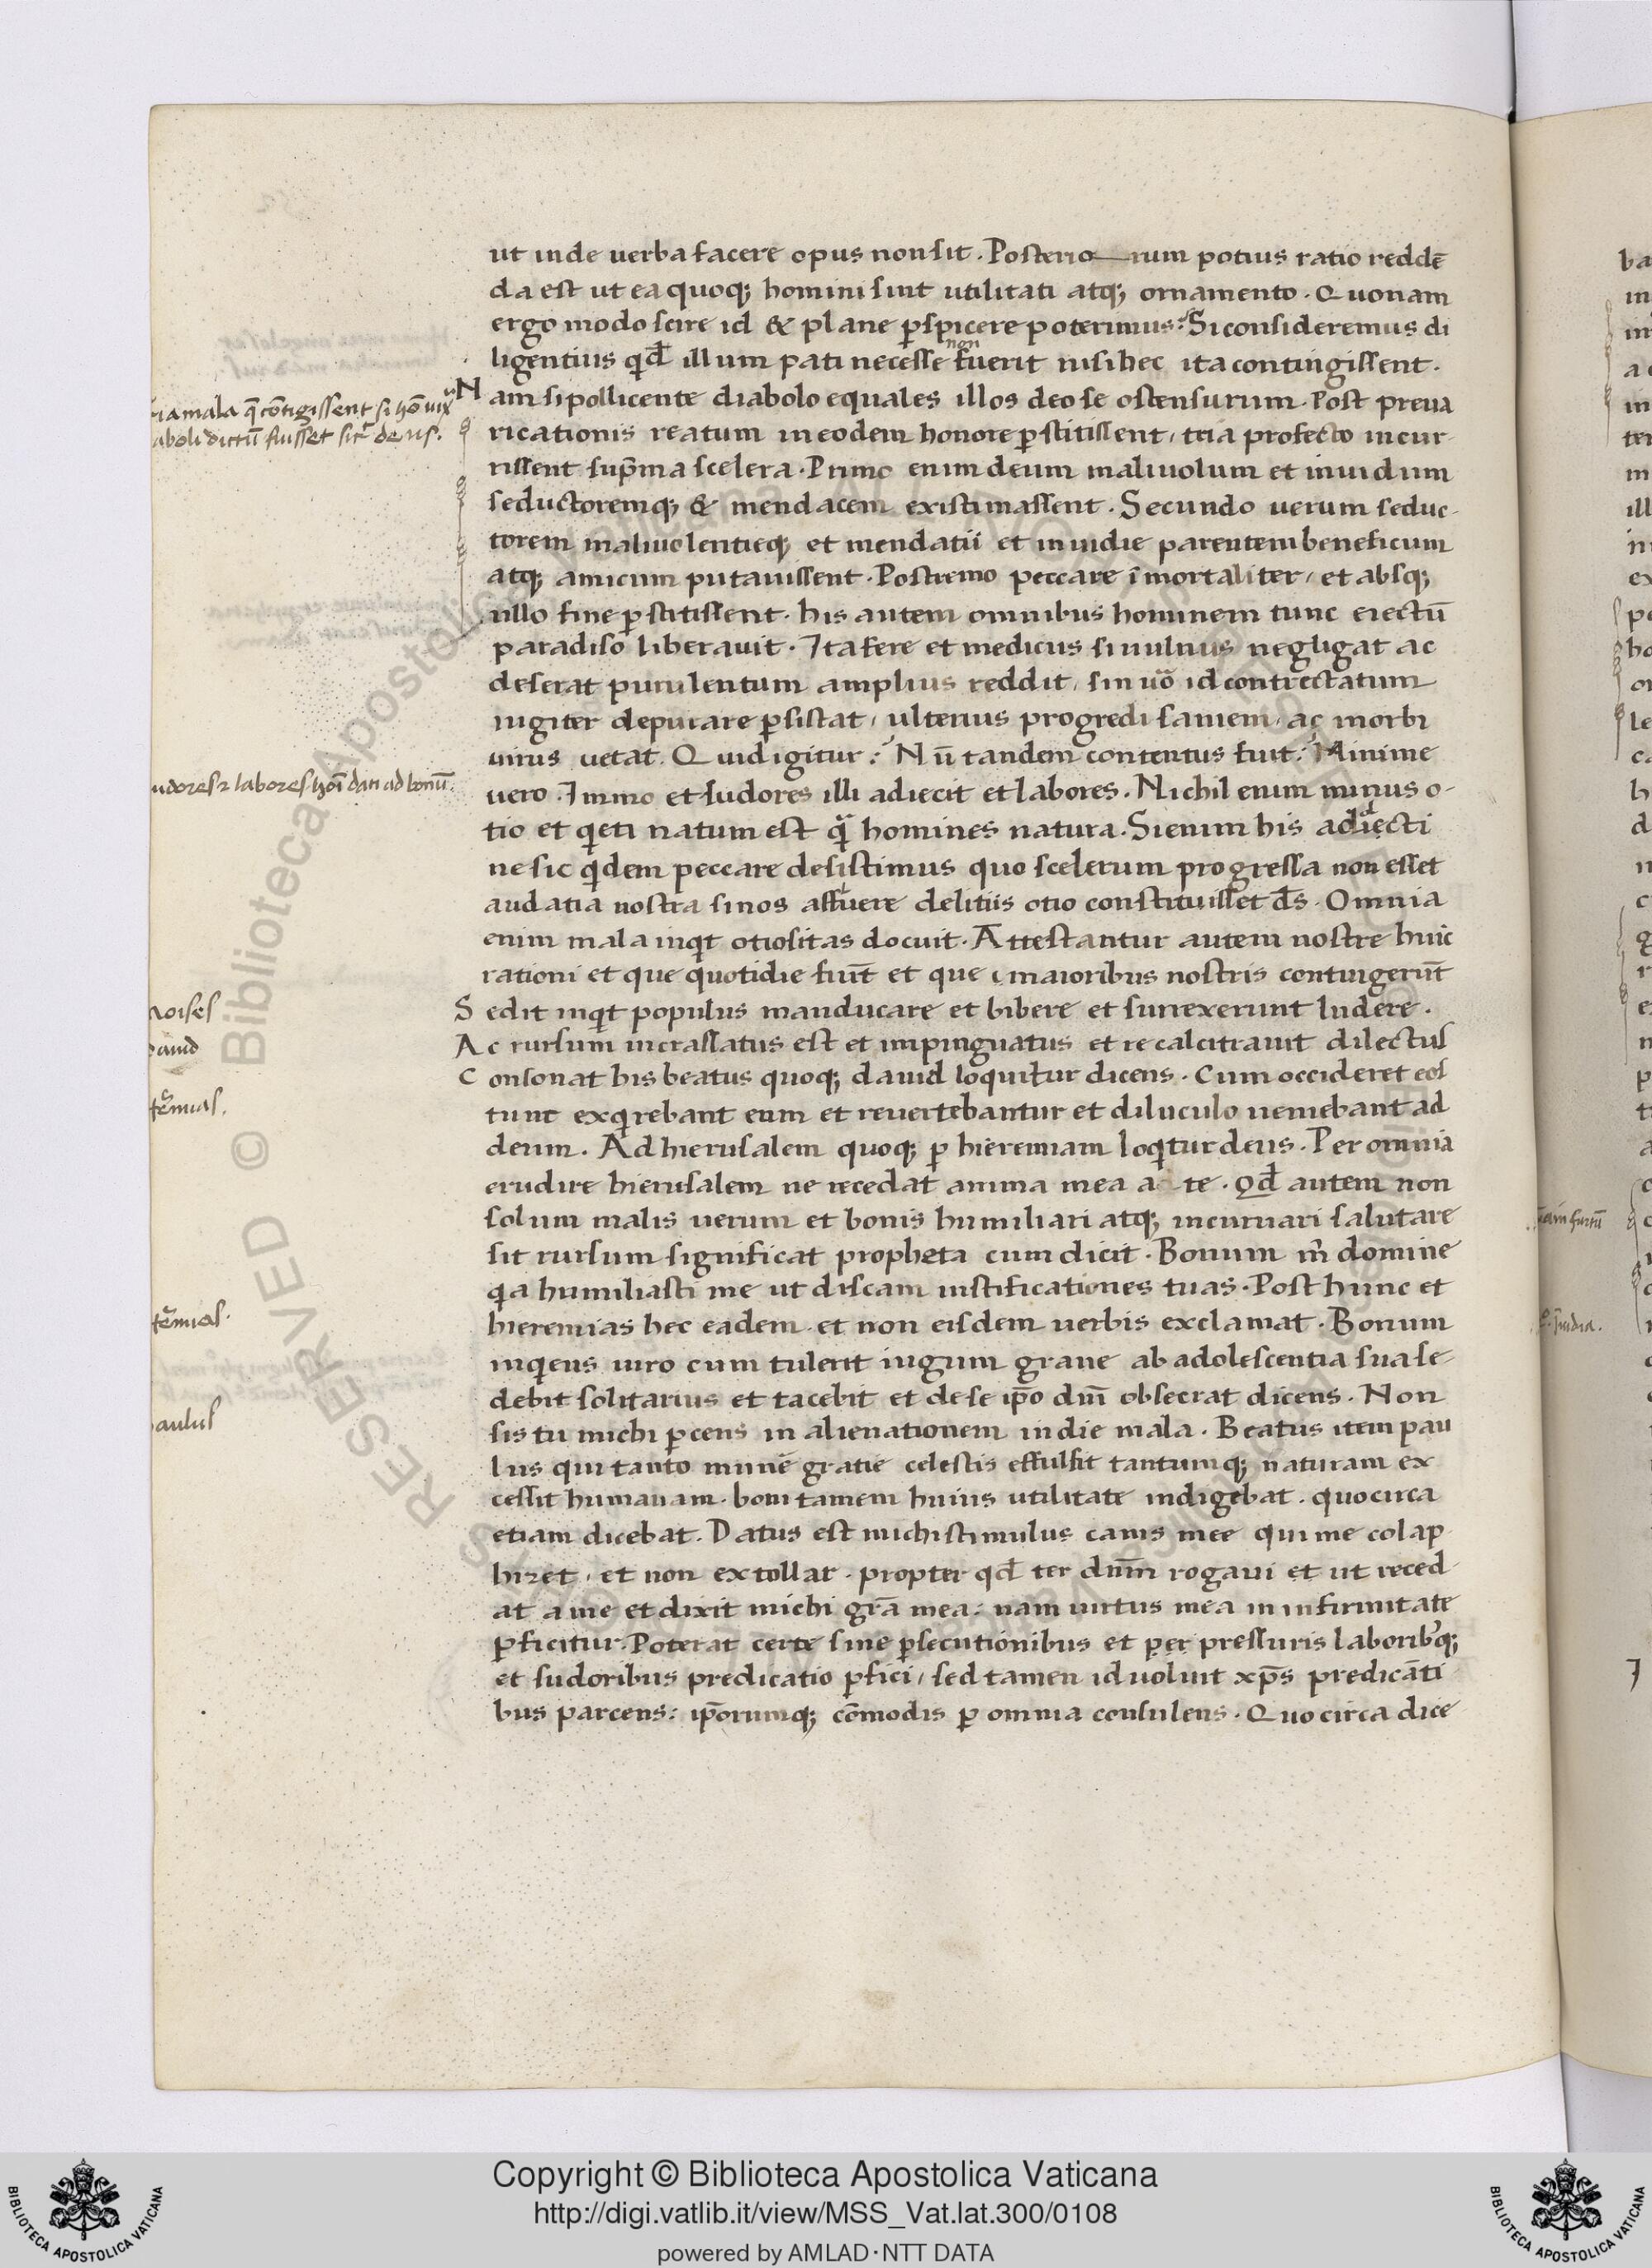 ut inde uerba facere opus non sit. Posterio—rum potius ratio reddē
da est ut ea quoq; homini sint utilitati atq; ornamento. Quonam
ergo modo scire id & plane ꝑspicere poterimus: Si consideremus di
ligentius qd̄ illum pati necesse non fuerit nisi hec ita contingissent.
Nam si pollicente diabolo equales illos deo se ostensurum. Post preua
ricationis reatum in eodem honore ꝑstitissent, tria profecto incur-
rissent sup̄ma scelera. Primo enim deum maliuolum et inuidum
seductoremq; & mendacem existimassent. Secundo uerum seduc-
torem maliuolentieq; et mendatii et inuidie parentem beneficum
atq; amicum putauissent. Postremo peccare īmortaliter, et absq;
ullo fine ꝑstitissent. his autem omnibus hominem tunc eiectū
paradiso liberauit. Ita fere et medicus si uulnus negligat ac
deserat purulentum amplius reddit, sin uo᷎ id contrectatum
iugiter depurare ꝑsistat, ulterius progredi saniem, ac morbi
uirus uetat. Quid igitur: Nū tandem contentus fuit: Minime
uero. Immo et sudores illi adiecit et labores. Nichil enim minus o-
tio et qieti natum est qᷓ homines natura. Si enim his adiecti
ne sic qidem peccare desistimus quo scelerum progressa non esset
audatia nostra si nos affluere delitiis otio constituisset ds̄. Omnia
enim mala inqit otiositas docuit. Attestantur autem nostre huic
rationi et que quotidie fiūt et que maioribus nostris contingerūt
Sedit inqit populus manducare et bibere et surrexerunt ludere.
Ac rursum incrassatus est et impinguatus et recalcitrauit dilectus
Consonat his beatus quoq; dauid loquitur dicens. Cum occideret eos
tunc exqirebant eum et reuertebantur et diluculo ueniebant ad
deum. Ad hierusalem quoq; ꝑ hieremiam loqitur deus. Per omnia
erudire hierusalem ne recedat anima mea a te. Qd̄ autem non
solum malis uerum et bonis humiliari atq; incuruari salutare
sit rursum significat propheta cum dicit. Bonum m̄ domine
qa humiliasti me ut discam iustificationes tuas. Post hunc et
hieremias hec eadem et non eisdem uerbis exclamat. Bonum
inqiens uiro cum tulerit iugum graue ab adolescentia sua se-
debit solitarius et tacebit et de se ip̄o dnī obsecrat dicens. Non
sis tu michi ꝑcens in alienationem in die mala. Beatus item pau
lus qui tanto munē gratie celestis effulsit tantumq; naturam ex
cessit humanam. boni tamem huius utilitate indigebat. quocirca
etiam dicebat. Datus est michi stimulus carnis mee qui me colap
hizet, et non extollar. propter qd̄ ter dnm̄ rogaui et ut reced-
at a me et dixit michi grā mea: nam uirtus mea in infirmitate
ꝑficitur. Poterat certe sine ꝑsecutionibus et per pressuris laborib'q;
et sudoribus predicatio ꝑfici, sed tamen id uoluit xp̄s predicāti
bus parcens: ip̄orumq; cōmodis ꝑ omnia consulens. Quocirca dice
ia mala q̄ cōtigissent si hō uix
aboli dictū fuisset
udores et labores hoī dati ad bonū.
moises
dauid
aulus
RESERVED © Biblioteca Apostolica Vaticana
Copyright © Biblioteca Apostolica Vaticana
http://digi.vatlib.it/view/MSS_Vat.lat.300/0108
powered by AMLAD·NTT DATA
BIBLIOTECA APOSTOLICA VATICANA
BIBLIOTECA APOSTOLICA VATICANA